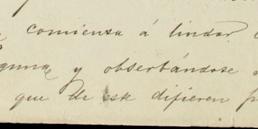 comienza á lindar
y observándose
que de este difieren